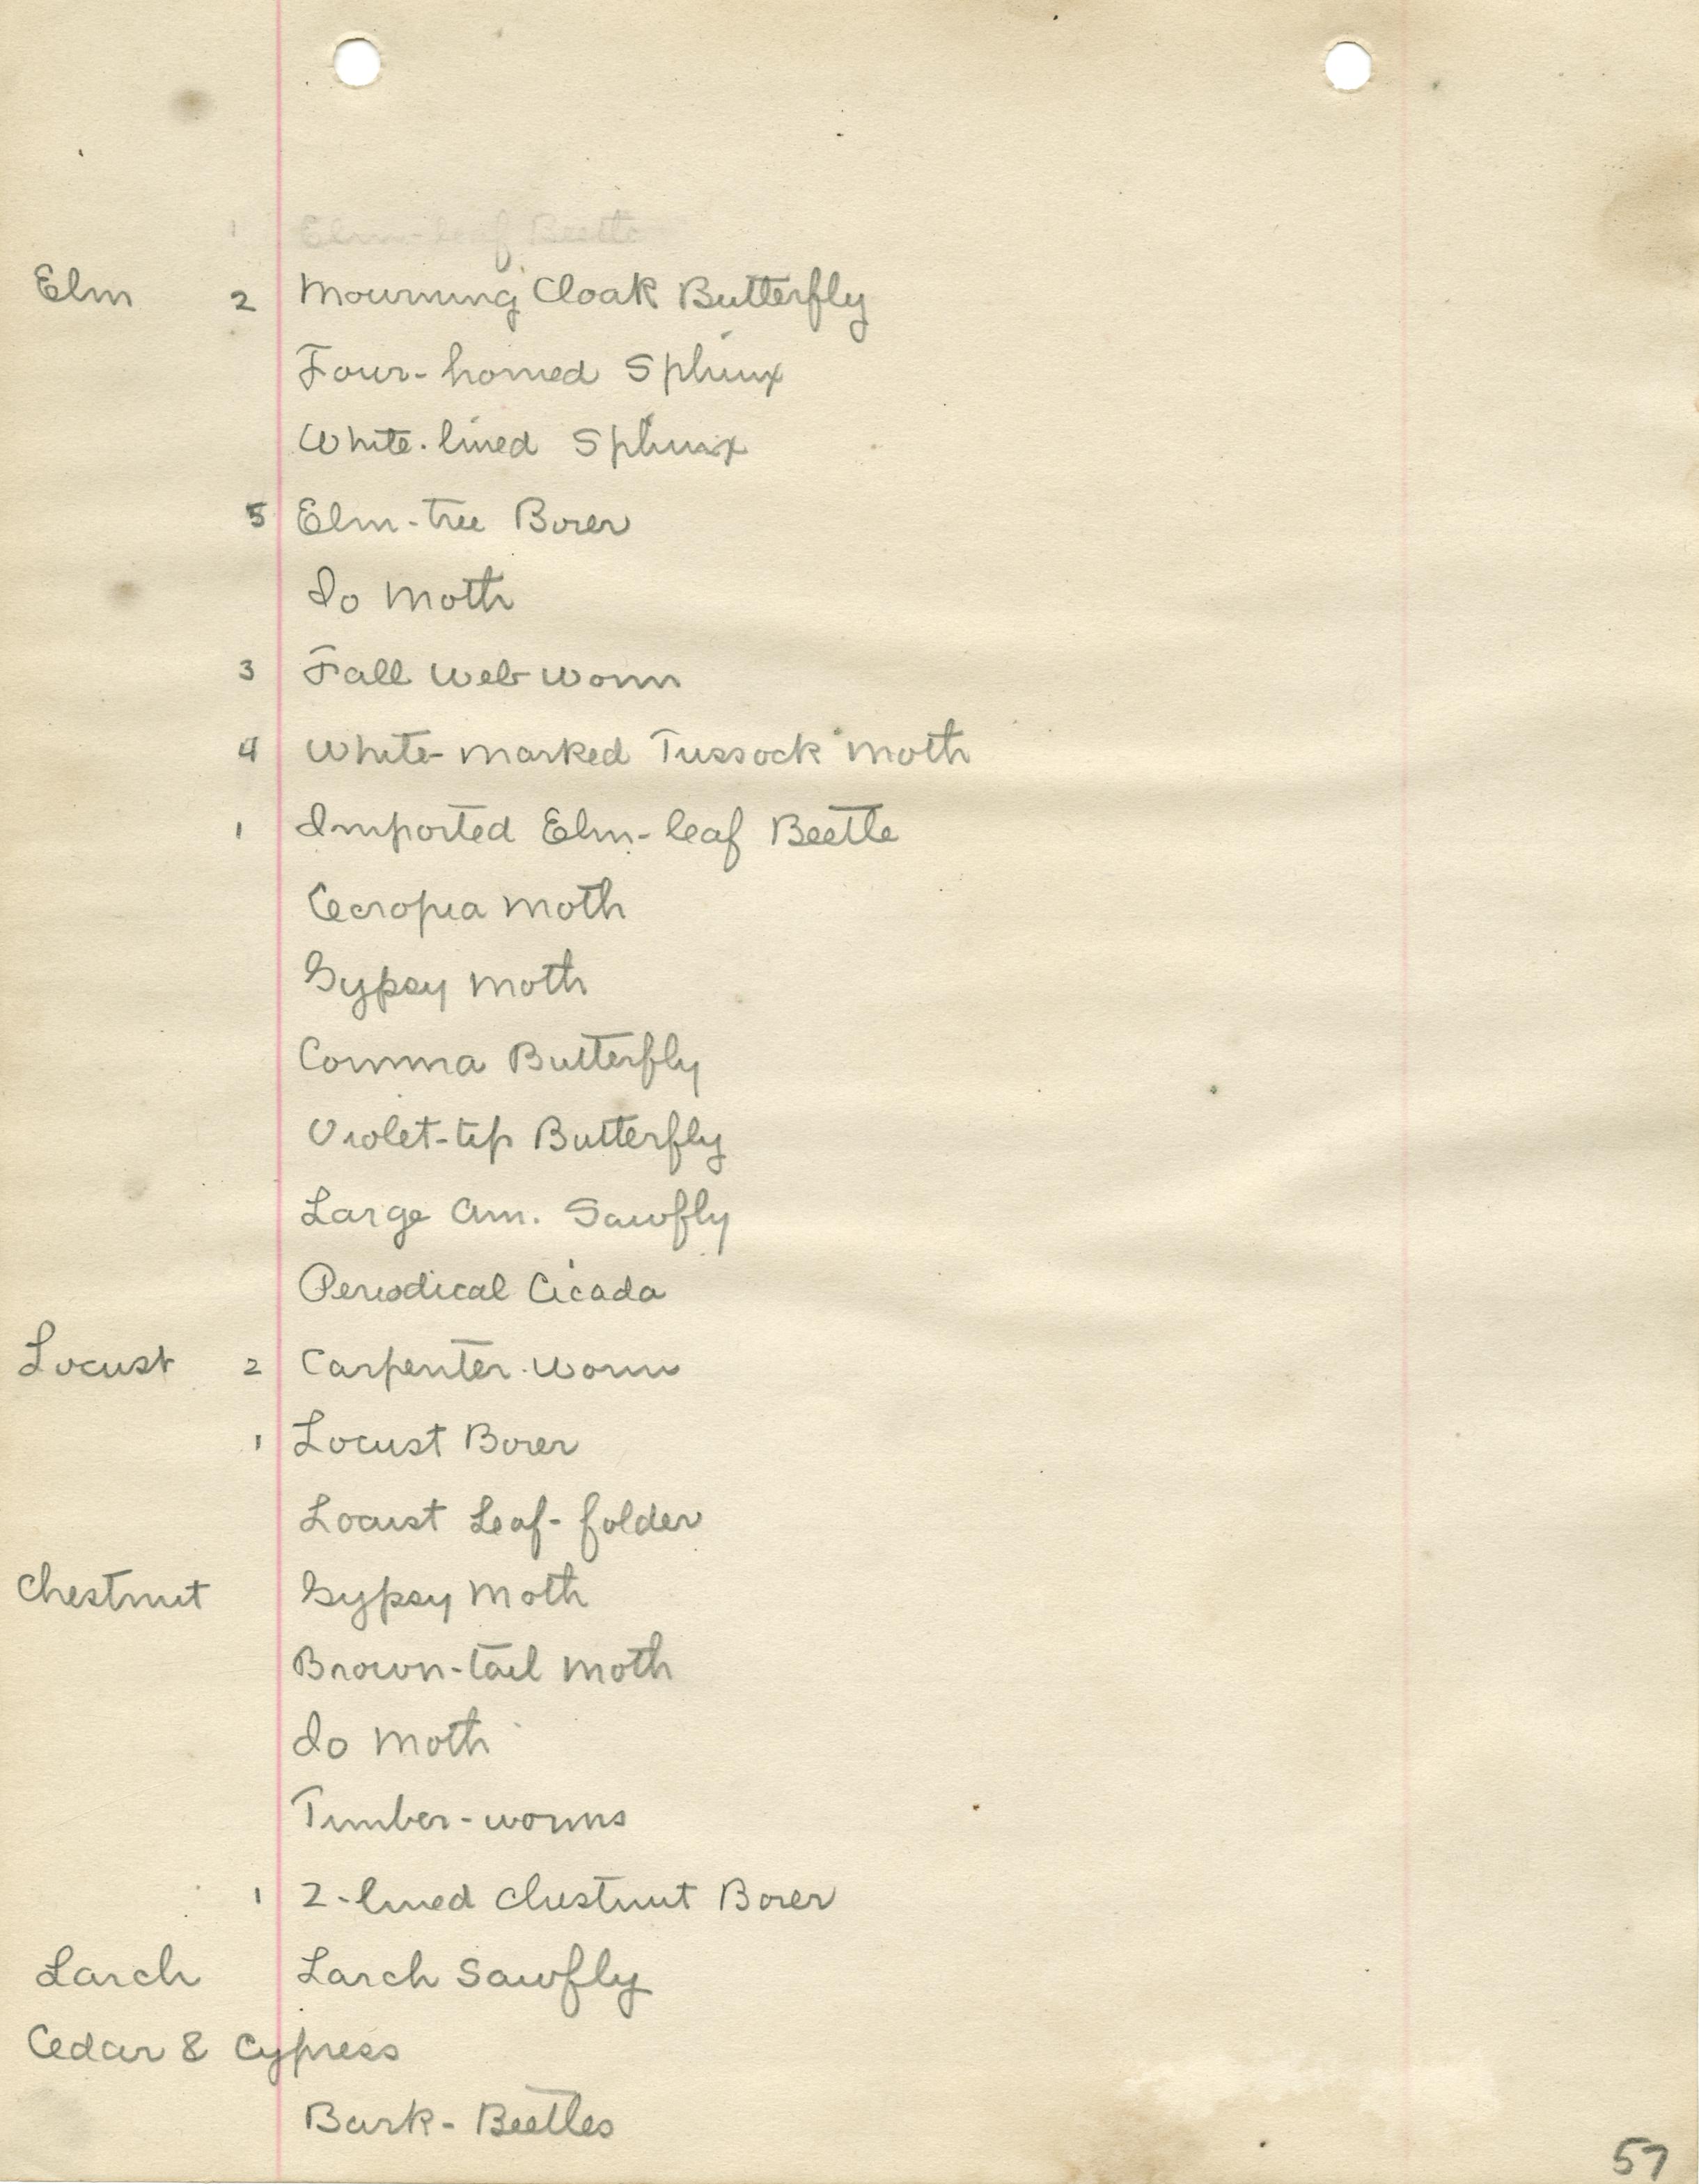 1 Elm-leaf Beetle
Elm 2 Mourning Cloak Butterfly
Four-horned Sphinx
White-lined Sphinx
5 Elm-tree Borer
Io Moth
3 Fall Web worm
4 White-marked Tussock Moth
1 Imported Elm-leaf Beetle
Cecropia Moth
Gypsy Moth
Comma Butterfly
Violet-tip Butterfly
Large Am. Sawfly
Periodical Cicada
Locust 2 Carpenter-worm
1 Locust Borer
Locust Leaf-folder
Chestnut Gypsy Moth
Brown-tail Moth
Io Moth
Timber-worms
1 2-lined Chestnut Borer
Larch Larch Sawfly
Cedar & Cypress
Bark-Beetles
57